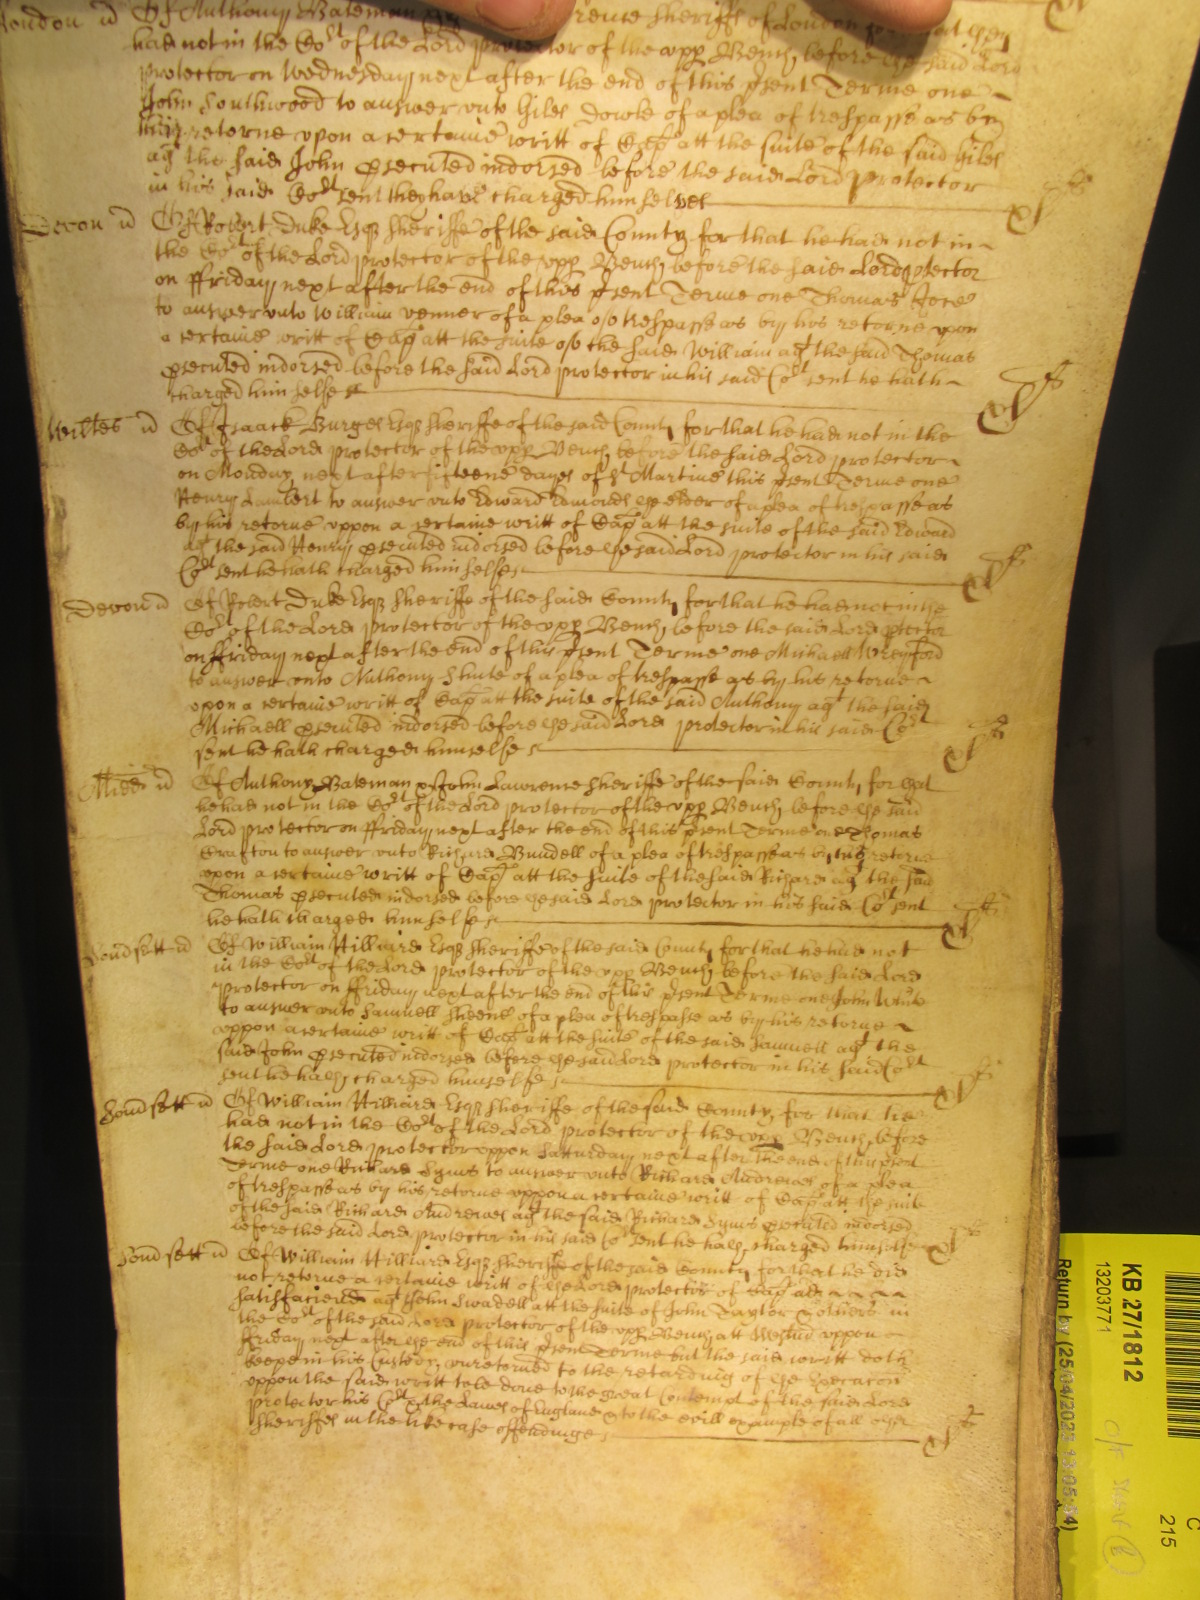 London Of Anthony Bateman rence Sheriffs of London for that they
had not in the Cort of the Lord protector of the upp Bench, before the said Lord
protector on Wednesday next after the end of this psent Terme one
John Southwood to answer unto Giles Dowle of a plea of trespasse as by
their retorne upon a certaine writt of Cap att the suite of the said Giles
agt the said John executed indorsed before the said Lord protector
in his said Cort sent they have charged themselves
Devon Of Robert Duke Esqr Sheriffe of the said County for that he had not in
the Cort of the Lord protector of the upp Bench, before the said Lord ptector
on ffriday next after the end of this psent Terme one Thomas
to answer unto William Venner of a plea of trespasse as by his retorne upon
a certaine writt of Cap att the suite of the said William agt the said Thomas
executed indorsed before the said Lord protector in his said Cort sent he hath
charged himselfe
Wiltes Of Isaack Burges Esqr Sheriffe of the said County for that he had not in the
Cort of the Lord protector of the upp Bench before the said Lord protector
on Monday next after fifteene dayes of St Martine this psent Terme one
Henry Lambert to answer unto Edward Edmonds the elder of a plea of trespasse as
by his retorne uppon a certaine writt of Cap att the suite of the said Edward
agt the said Henry executed indorsed before the said Lord protector in his said
Cort sent he hath charged himselfe
Devon Of Robert Duke Esqr Sheriffe of the said County for that he had not in the
Cort of the Lord protector of the upp Bench, before the said Lord ptector
on ffriday next after the end of this psent Terme one Michaell Wreyford
to answer unto Anthony Shute of a plea of trespasse as by his retorne
upon a certaine writt of Cap att the suite of the said Anthony agt the said
Michaell executed indorsed before the said Lord protector in his said Cort
sent he hath charged himselfe
Midd Of Anthony Bateman & John Lawrence Sheriffe of the said County for that
he had not in the Cort of the Lord protector of the upp Bench before the said
Lord protector on ffriday next after the end of this psent Terme one Thomas
Crafton to answer unto Richard Bundell of a plea of trespasse as by his retorne
upon a certaine writt of Cap att the suite of the said Richard agt the said
Thomas executed indorsed before the said Lord protector in his said Cort sent
he hath charged himselfe
Of William Hilliard Esqr Sheriffe of the said County for that he had not
in the Cort of the Lord protector of the upp Bench, before the said Lord
protector on ffriday next after the end of this psent Terme one John White
to answer unto Samuell Skeene of a plea of trespasse as by his retorne
uppon a certaine writt of Cap att the suite of the said Samuell agt the
said John executed indorsed before the said Lord protector in his said Cort
sent he hath charged himselfe
Of William Hilliard Esqr Sheriffe of the said County for that he
had not in the Cort of the Lord protector of the upp Bench, before
the said Lord protector uppon Satturday next after the end of this psent
Terme one Richard Syms to answer unto Richard Andrewes of a plea
of trespasse as by his retorne uppon a certaine writt of Cap att the suite
of the said Richard Andrewes agt the said Richard Syms executed indorsed
before the said Lord protector in his said Cort sent he hath charged himselfe
Of William Hilliard Esqr Sheriffe of the said County for that he did
not retorne a certaine writt of the Lord protector of Cap ad
satisfaciend agt John Swadell att the suite of John Taylor & others in
the Cort of the said Lord protector of the upp Bench att Westm uppon
ffriday next after the end of this psent Terme but the said writt doth
keepe in his Custody unretorned to the retarding of the Execucon
uppon the said writt to be done to the great Contempt of the said Lord
protector his Cort & the Lawes of England & to the evill example of all other
Sheriffes in the like case offendinge
KB 27/1812
13203771
Return by (25/04/202 13:05:54)
C
215